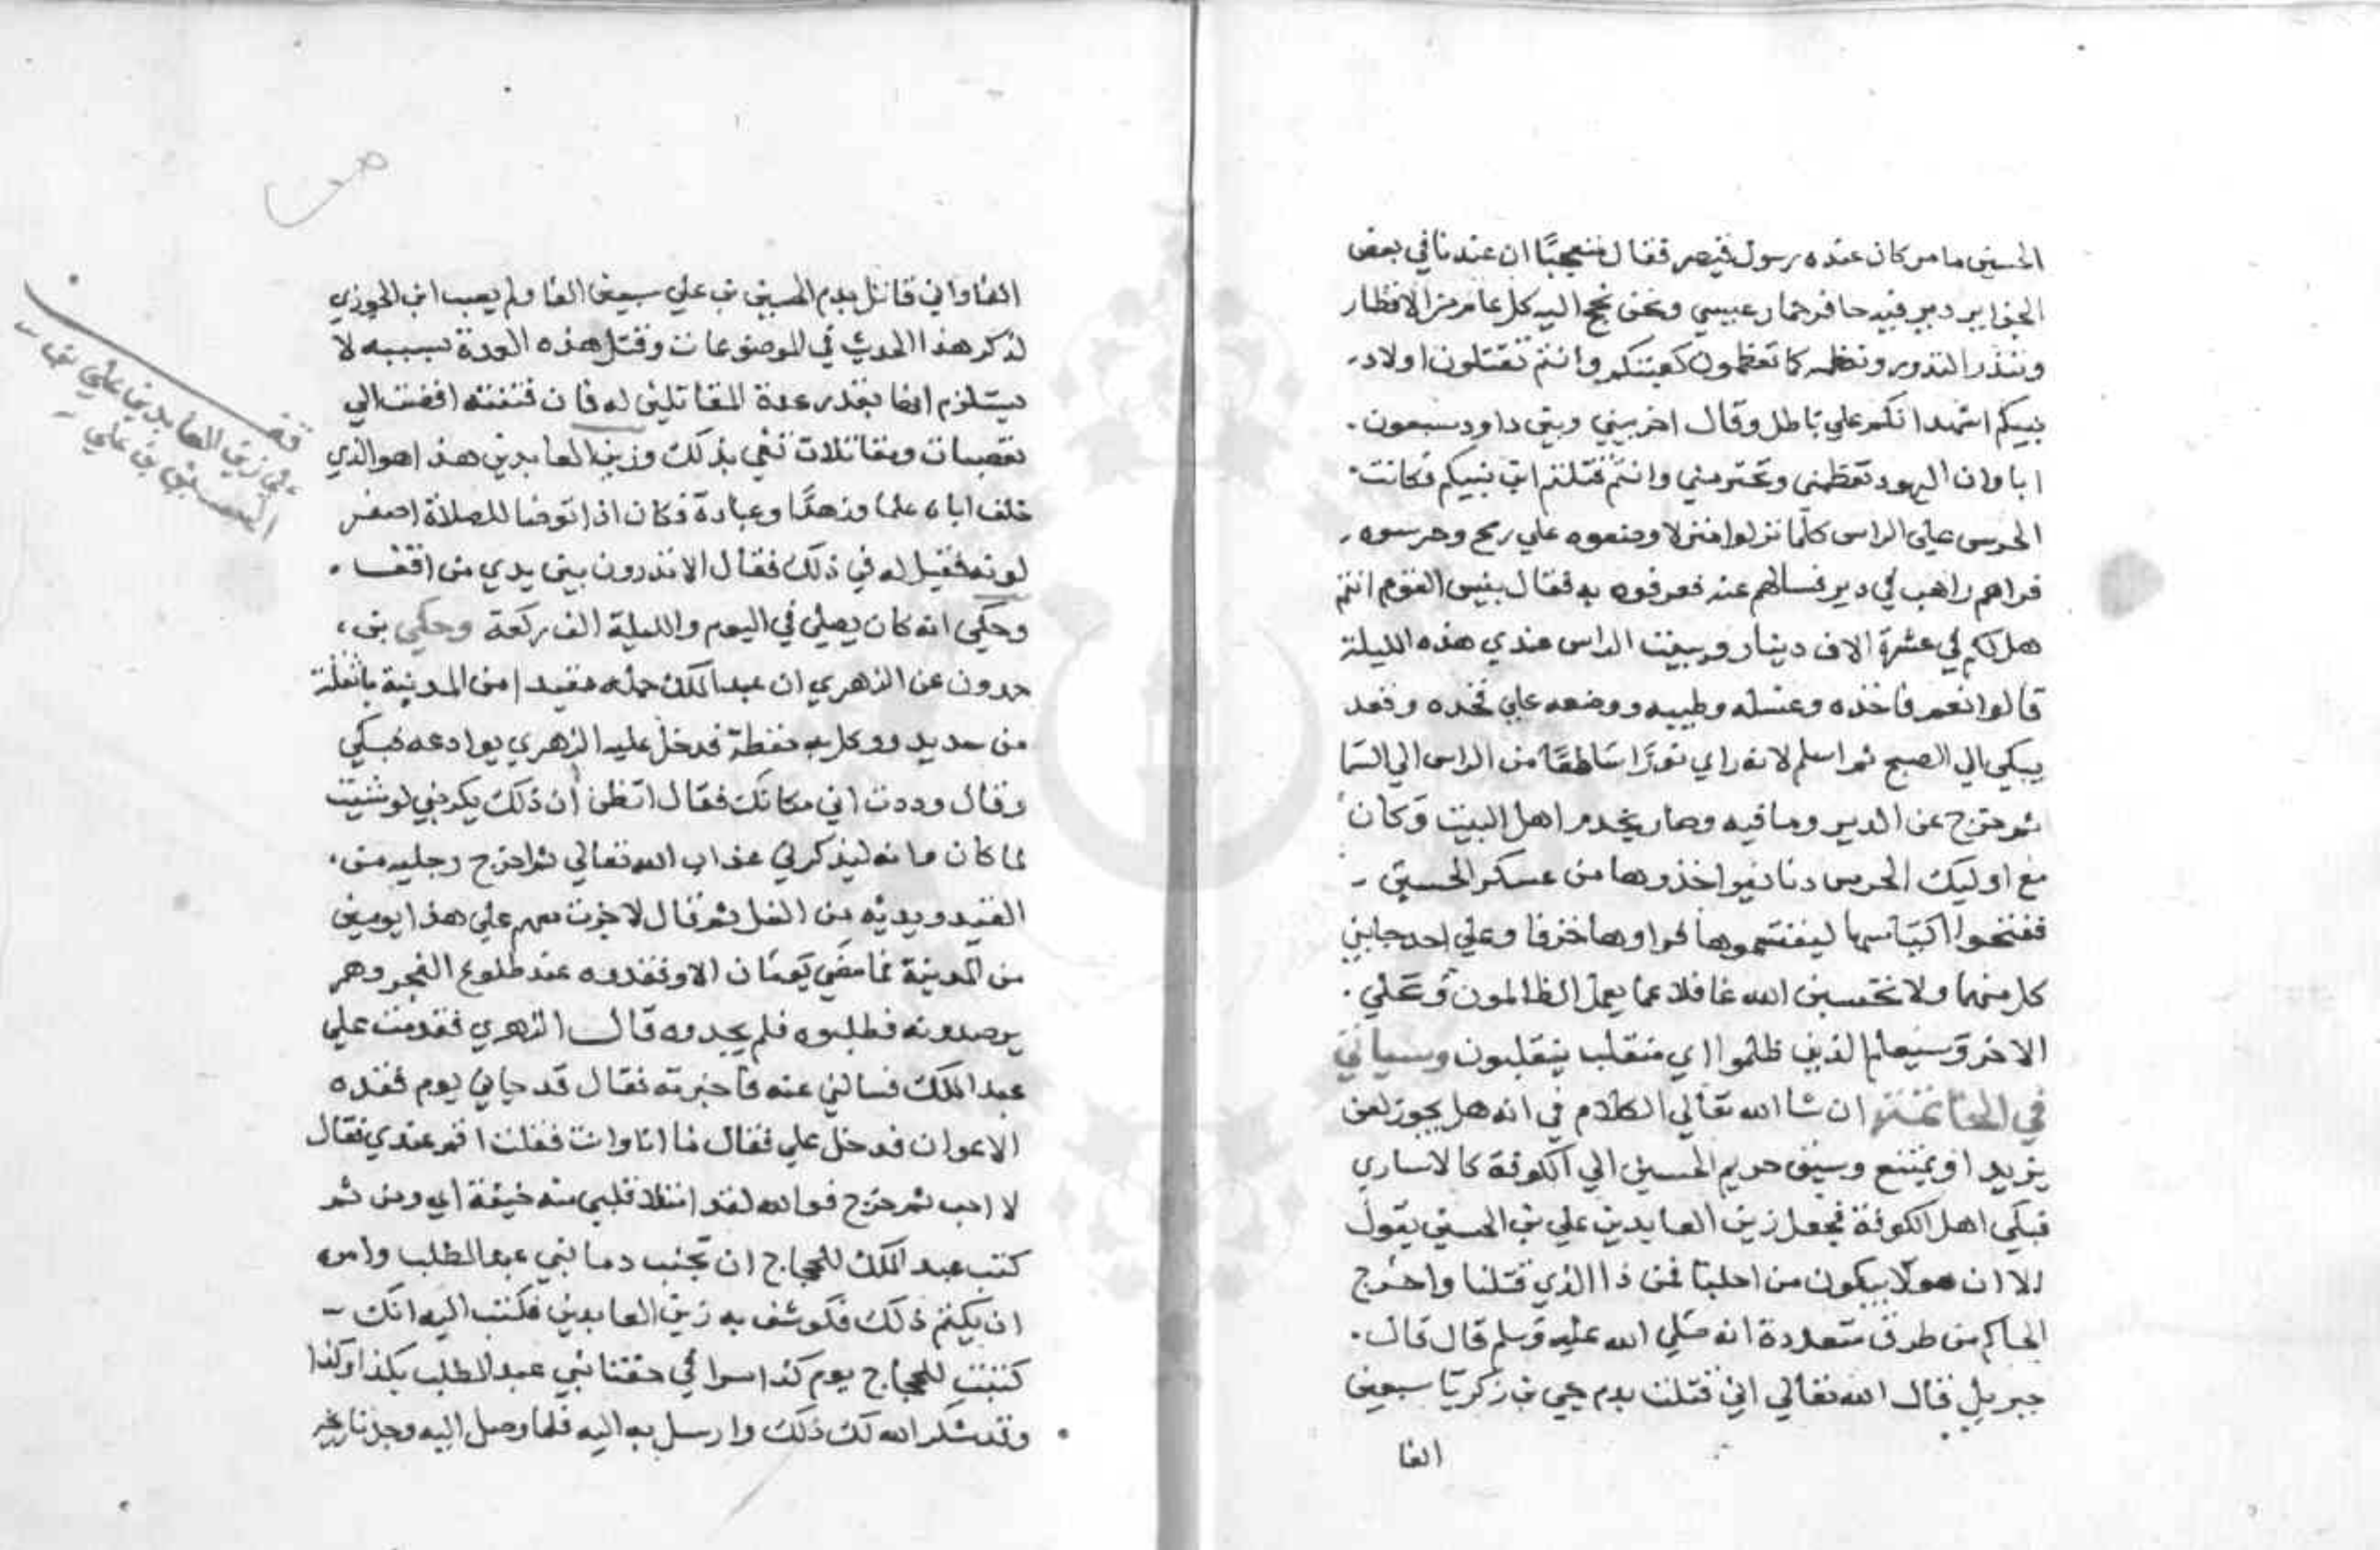 الحسين ما مر كان عنده رسول قيصر فقال متعجبًا ان عندنا في بعض
الجزاير دير فيه حافر حمار عيسي ونحن نحج اليه كل عام من الاقطار
وننذر النذور ونعظمه كما تعظمون كعبتكم وانتم تقتلون اولاد
نبيكم اشهد انكم علي باطل وقال اخر بيني وبين داود سبعون
ابا وان اليهود تعظمني وتحترمني وانتم قتلتم ابن نبيكم وكانت
الحرس علي الراس كلما نزلوا منزلا وضعوه علي رمح وحرسوه
فراهم راهب في دير فسالهم عنه فعرفوه به فقال بئيس القوم انتم
هل لكم في عشرة الاف دينار ويبيت الراس عندي هذه الليلة
قالوا نعم فاخذه وغسله وطيبه ووضعه علي فخذه وقعد
يبكي الي الصبح ثم اسلم لانه راي نورًا ساطعًا من الراس الي السما
ثم خرج عن الدير وما فيه وصار يخدم اهل البيت وكان
مع اوليك الحرس دنانير اخذوها من عسكر الحسين
ففتحوا اكياسها ليقتسموها فراوها خزفا وعلي احد جانبي
كل منها ولا تحسبن الله غافلا عما يعمل الظالمون وعلي
الاخر وسيعلم الذين ظلموا اي منقلب ينقلبون وسياتي
في الخاتمة ان شا الله تعالي الكلام في انه هل يجوز لعن
يزيد او يمتنع وسيق حريم الحسين الي الكوفة كالاساري
فبكي اهل الكوفة فجعل زين العابدين علي بن الحسين يقول
الا ان هولا يبكون من اجلنا فمن ذا الذي قتلنا واخرج
الحاكم من طرق متعددة انه صلي الله عليه وسلم قال قال
جبريل قال الله تعالي اني قتلت بدم يحيي بن زكريا سبعين
الفا
الفا واني قاتل بدم الحسين بن علي سبعين الفا ولم يصب ابن الجوزي
لذكر هذا الحديث في الموضوعات وقتل هذه العدة بسببه لا
يستلزم انها بقدر عدة المقاتلين له فان فتنته افضت الي
تعصبات ومقاتلات تفي بذلك وزين العابدين هذا هو الذي
خلف اباه علما وزهدًا وعبادة فكان اذا توضا للصلاة اصفر
لونه فقيل له في ذلك فقال الا تدرون بين يدي من اقف
وحكي انه كان يصلي في اليوم والليلة الف ركعة وحكي بن
حمدون عن الزهري ان عبد الملك حمله مقيدا من المدينة باثقلة
من حديد ووكل به حفظة فدخل عليه الزهري يوادعه فبكي
وقال وددت اني مكانك فقال اتظن ان ذلك يكربني لو شيت
لما كان وانه ليذكرني عذاب الله تعالي ثم اخرج رجليه من
القيد ويديه من الغل ثم قال لا جزت معهم علي هذا يومين
من المدينة فما مضي يومان الا وفقدوه عند طلوع الفجر وهم
يرصدونه فطلبوه فلم يجدوه قال الزهري فقدمت علي
عبد الملك فسالني عنه فاخبرته فقال قد جاني يوم فقده
الاعوان فدخل علي فقال ما انا وانت فقلت اقم عندي فقال
لا احب ثم خرج فوالله لقد امتلا قلبي منه خيفة اي ومن ثم
كتب عبد الملك للحجاج ان تجنب دما بني عبد المطلب وامره
ان يكتم ذلك فكوشف به زين العابدين فكتب اليه انك
كتبت للحجاج يوم كذا سرا في حقنا بني عبد المطلب بكذا وكذا
وقد شكر الله لك ذلك وارسل به اليه فلما وصل اليه وجد تاريخه
قف
علي زين العابدين علي بن
الحسين بن علي